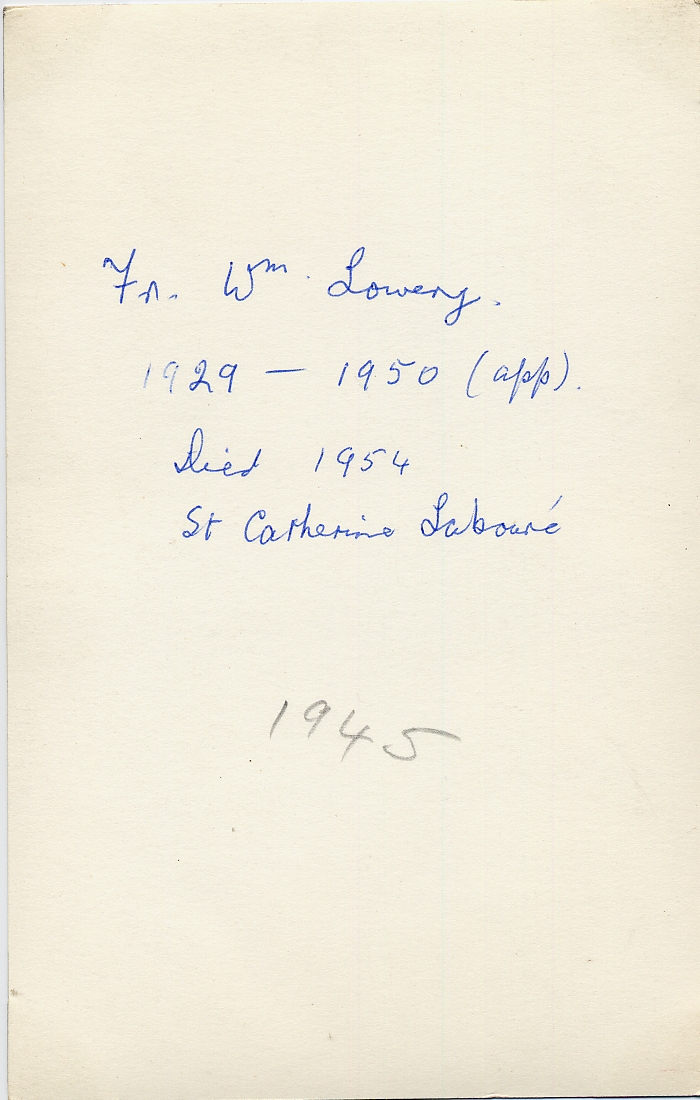 Fr. Wm. Lowery.
1929 — 1950 (app).
Died 1954
St Catherine Labouré
1945